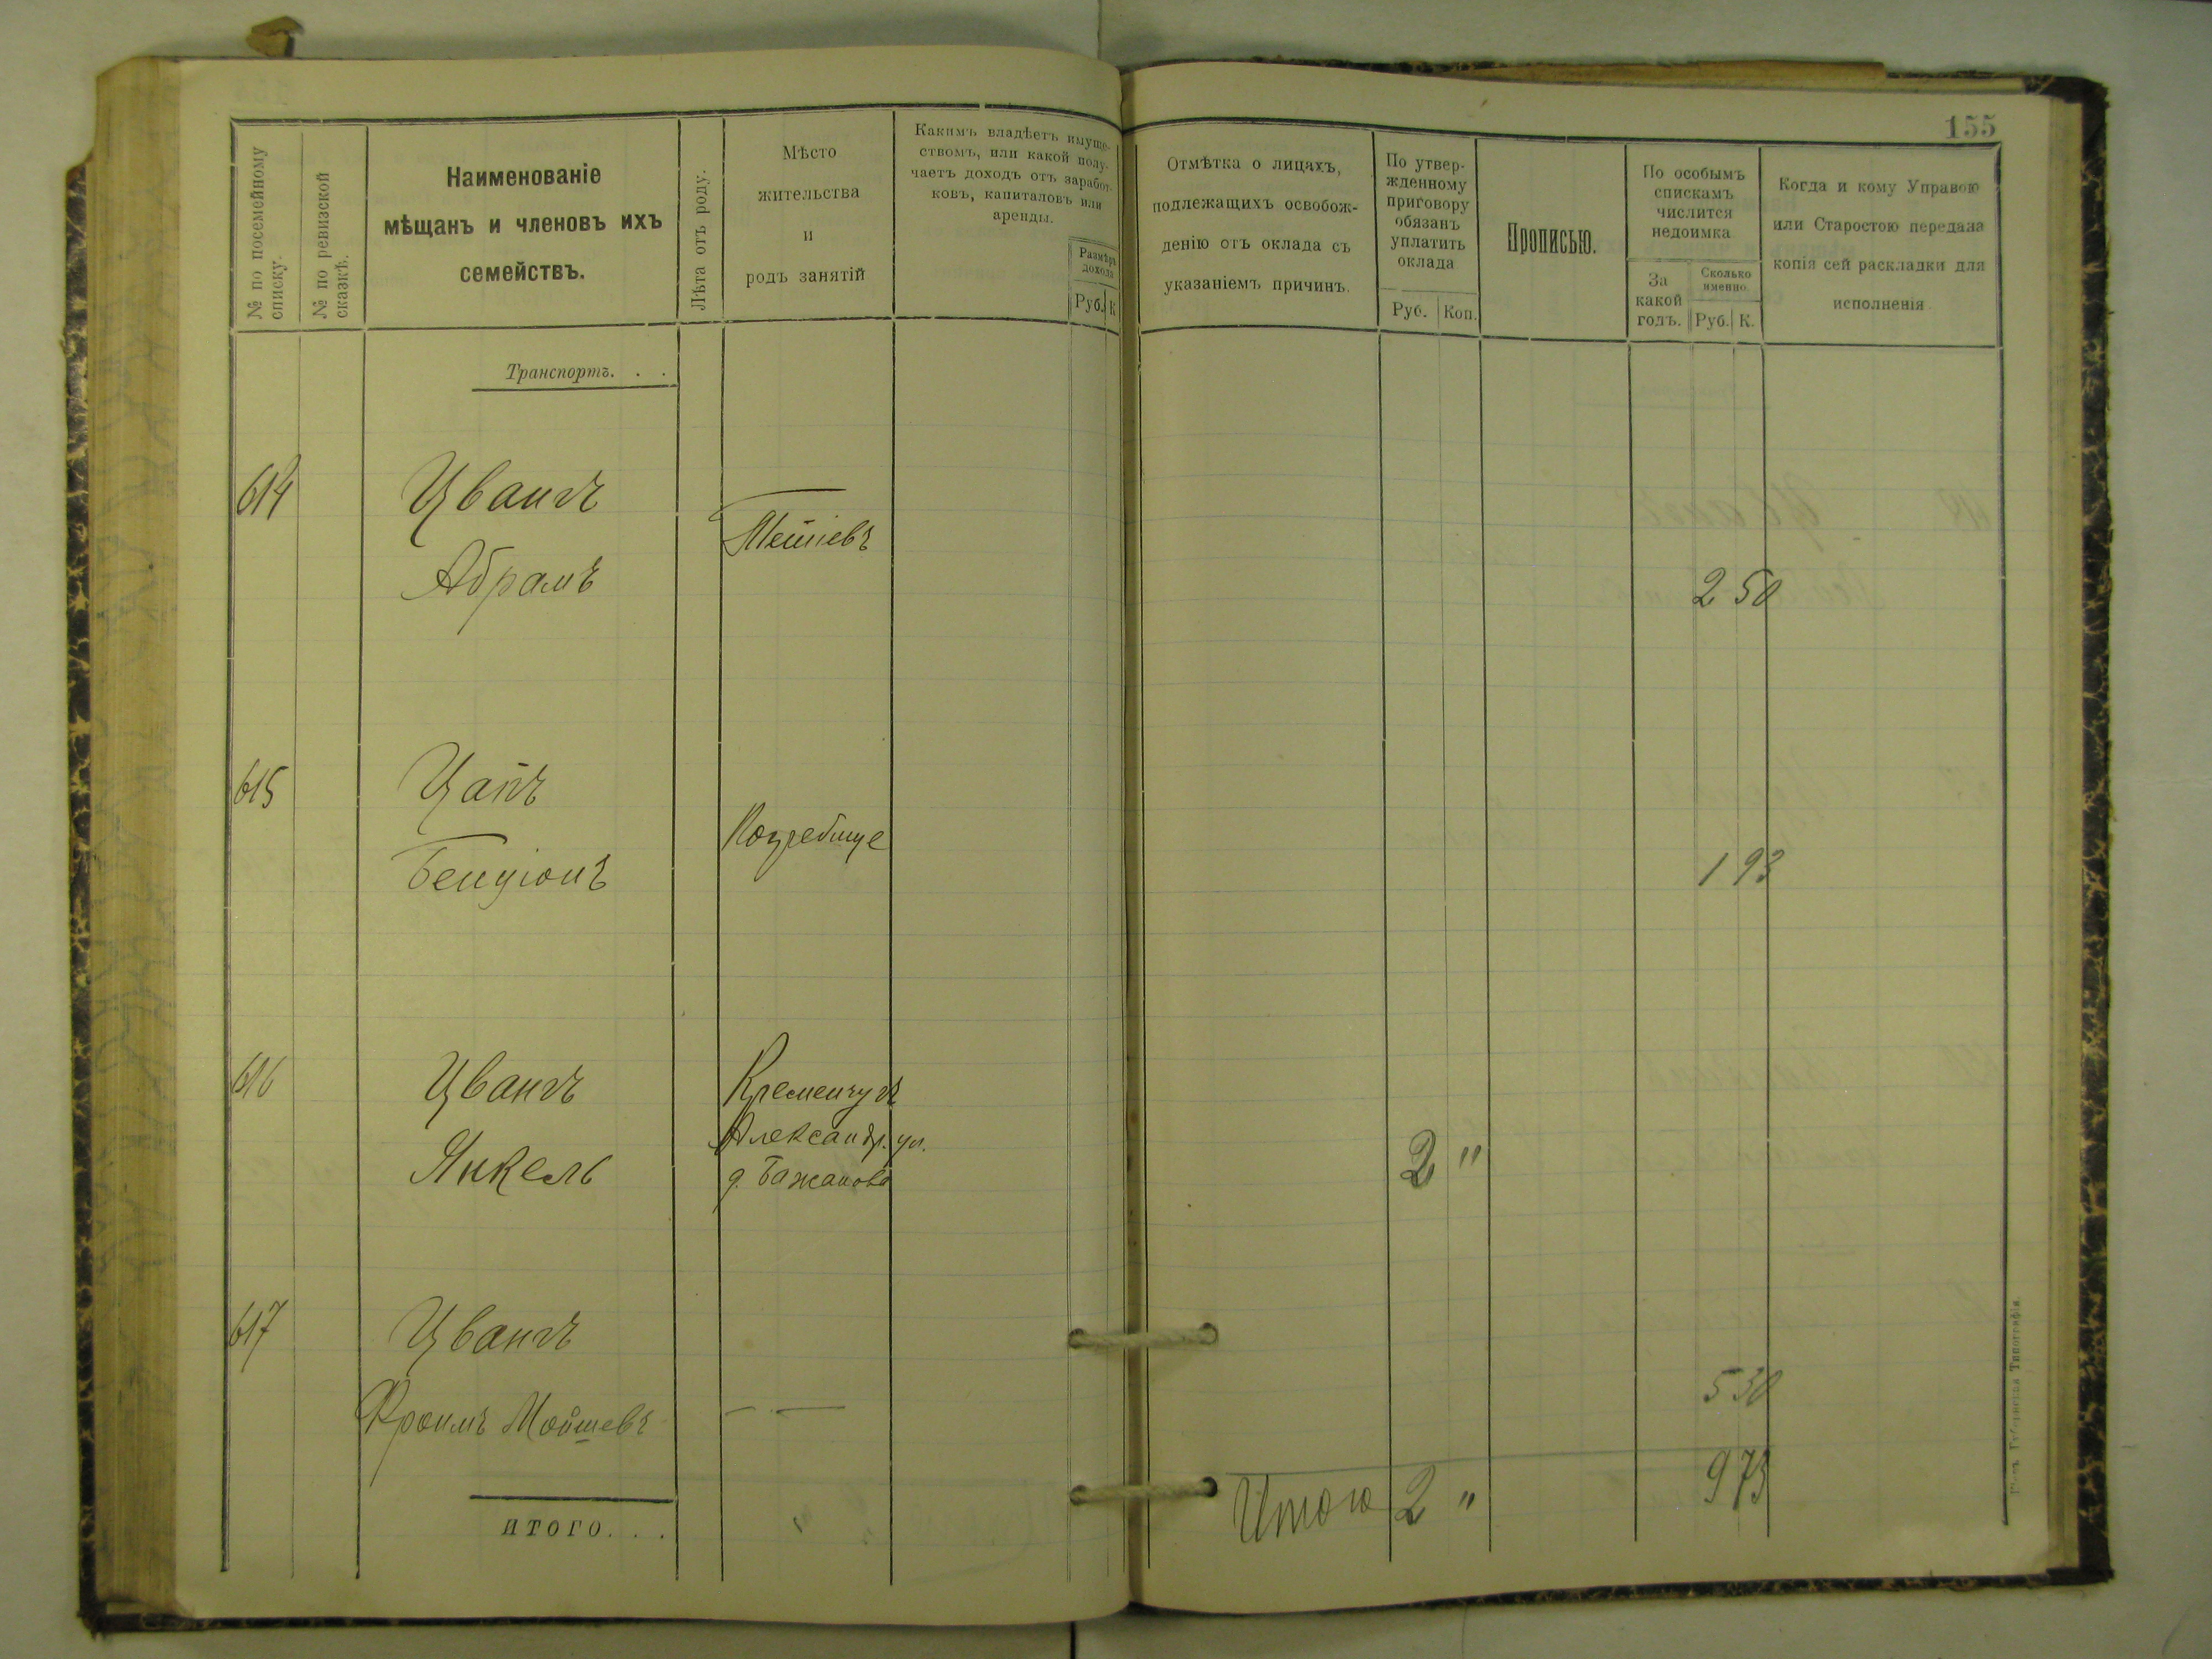 155
№ по посемейному списку.
№ по ревизской сказкѣ.
Наименованіе
мѣщанъ и членовъ ихъ
семействъ.
Лѣта отъ роду.
Мѣсто
жительства
и
родъ занятій
Какимъ владѣетъ имуще-
ствомъ, или какой полу-
чаетъ доходъ отъ заработ-
ковъ, капиталовъ или
аренды.
Размѣръ
дохода
Руб. К
Отмѣтка о лицахъ,
подлежащихъ освобож-
денію отъ оклада съ
указаніемъ причинъ.
По утвер-
жденному
приговору
обязанъ
уплатить
оклада
Руб. Коп.
Прописью.
По особымъ
спискамъ
числится
недоимка
За
какой
годъ.
Сколько
именно.
Руб. К.
Когда и кому Управою
или Старостою передана
копія сей раскладки для
исполненія.
Транспортъ. . .
614 Цвангъ
Абрамъ
Тетіевъ
2 50
615 Цапъ
Бенціонъ
Погребище
1 93
616 Цвангъ
Янкель
Кременчугъ
Александр. ул.
д. Бажанова
2 "
617 Цвангъ
Фроимъ Мойшевъ
— —
5 30
Итого 2 " 9 73
ИТОГО. . .